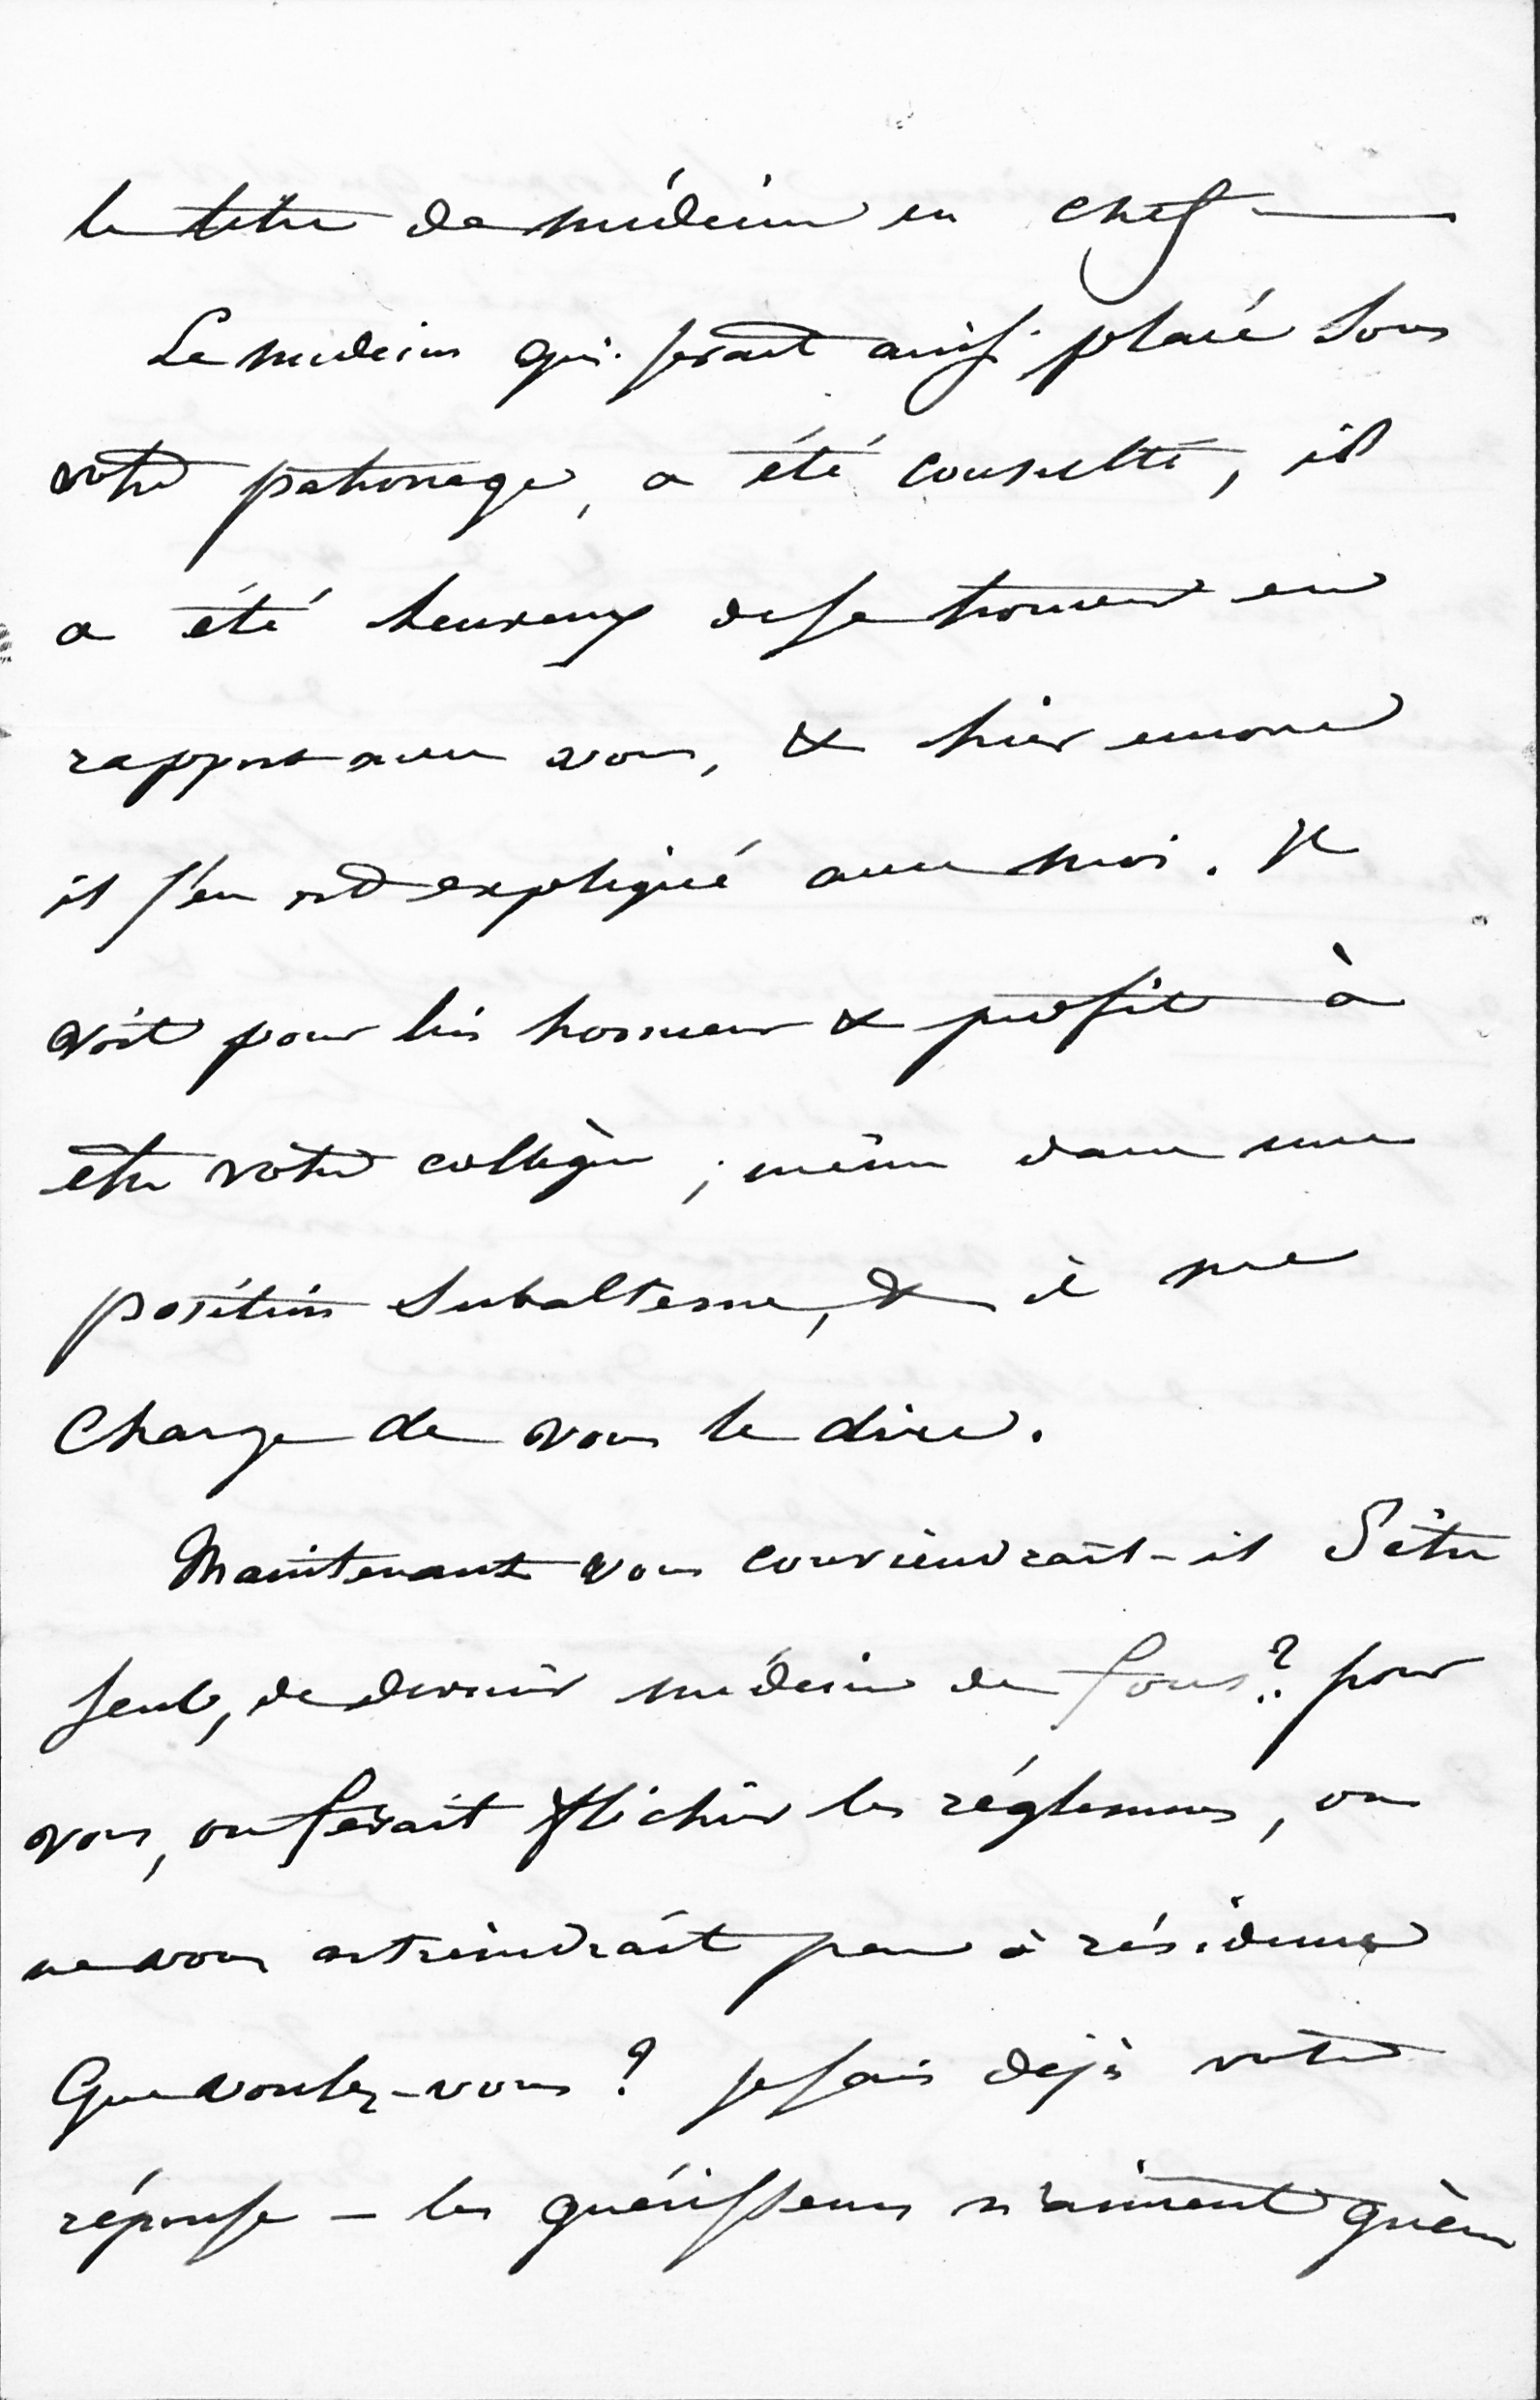 le titre de médecin en chef —
Le médecin qui serait ainsi placé sous
votre patronage, a été consulté, il
a été heureux de se trouver en
rapport avec vous, & hier encore
il s'en est expliqué avec moi. Il
voit pour lui honneur & profit à
être votre collègue, même dans une
position subalterne, & il me
charge de vous le dire.
Maintenant vous conviendrait-il d'être
seul, de devenir médecin de fous ? pour
vous, on ferait fléchir les réglemens, on
ne vous astreindrait pas à résidence
Que voulez-vous ? je sais dejà votre
réponse — les guérisseurs n'aiment guère